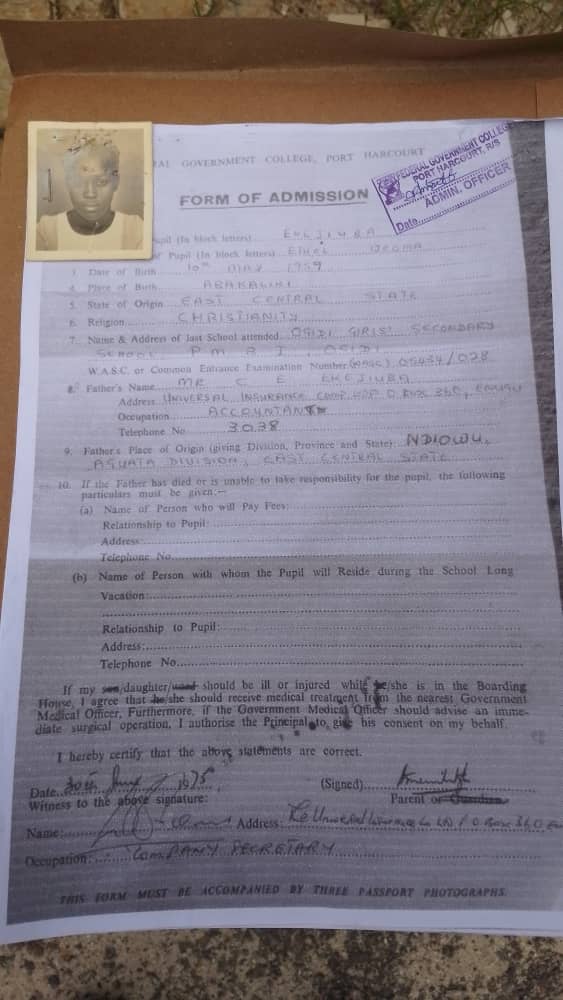 RAL GOVERNMENT COLLEGE, PORT HARCOURT
FEDERAL GOVERNMENT COLLEGE
PORT HARCOURT, R/S
ADMIN. OFFICER
Date
FORM OF ADMISSION
upil (In block letters) EKEJIUBA
of Pupil (In block letters) ETHEL IJEOMA
3. Date of Birth 10th MAY 1959
4. Place of Birth ABAKALIKI
5. State of Origin EAST CENTRAL STATE
6. Religion CHRISTIANITY
7. Name & Address of last School attended OGIDI GIRLS' SECONDARY
SCHOOL P M B I, OGIDI
W.A.S.C. or Common Entrance Examination Number (WASC) 05434/028
8. Father's Name MR C E EKEJIUBA
Address UNIVERSAL INSURANCE COMP. P O BOX 360, ENUGU
Occupation ACCOUNTANT
Telephone No 3038
9. Father's Place of Origin (giving Division, Province and State): NDIOWU,
AGUATA DIVISION, EAST CENTRAL STATE
10. If the Father has died or is unable to take responsibility for the pupil, the following
particulars must be given:—
(a) Name of Person who will Pay Fees:
Relationship to Pupil:
Address
Telephone No.
(b) Name of Person with whom the Pupil will Reside during the School Long
Vacation:
Relationship to Pupil:
Address:
Telephone No.
If my son/daughter/ward should be ill or injured while he/she is in the Boarding
House, I agree that he/she should receive medical treatment from the nearest Government
Medical Officer, Furthermore, if the Government Medical Officer should advise an imme-
diate surgical operation, I authorise the Principal to give his consent on my behalf.
I hereby certify that the above statements are correct.
Date 30th 1975 (Signed)
Parent or Guardian
Witness to the above signature:
Name: Address Box 360
Occupation: COMPANY SECRETARY
THIS FORM MUST BE ACCOMPANIED BY THREE PASSPORT PHOTOGRAPHS.